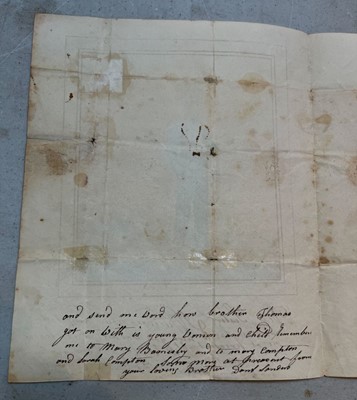 and send me word how brother Thomas
got on With is young Woman and Child remember
me to Mary Barnesby and to mary Compton
and Sarah Compton No More at preasent from
your loving Brother